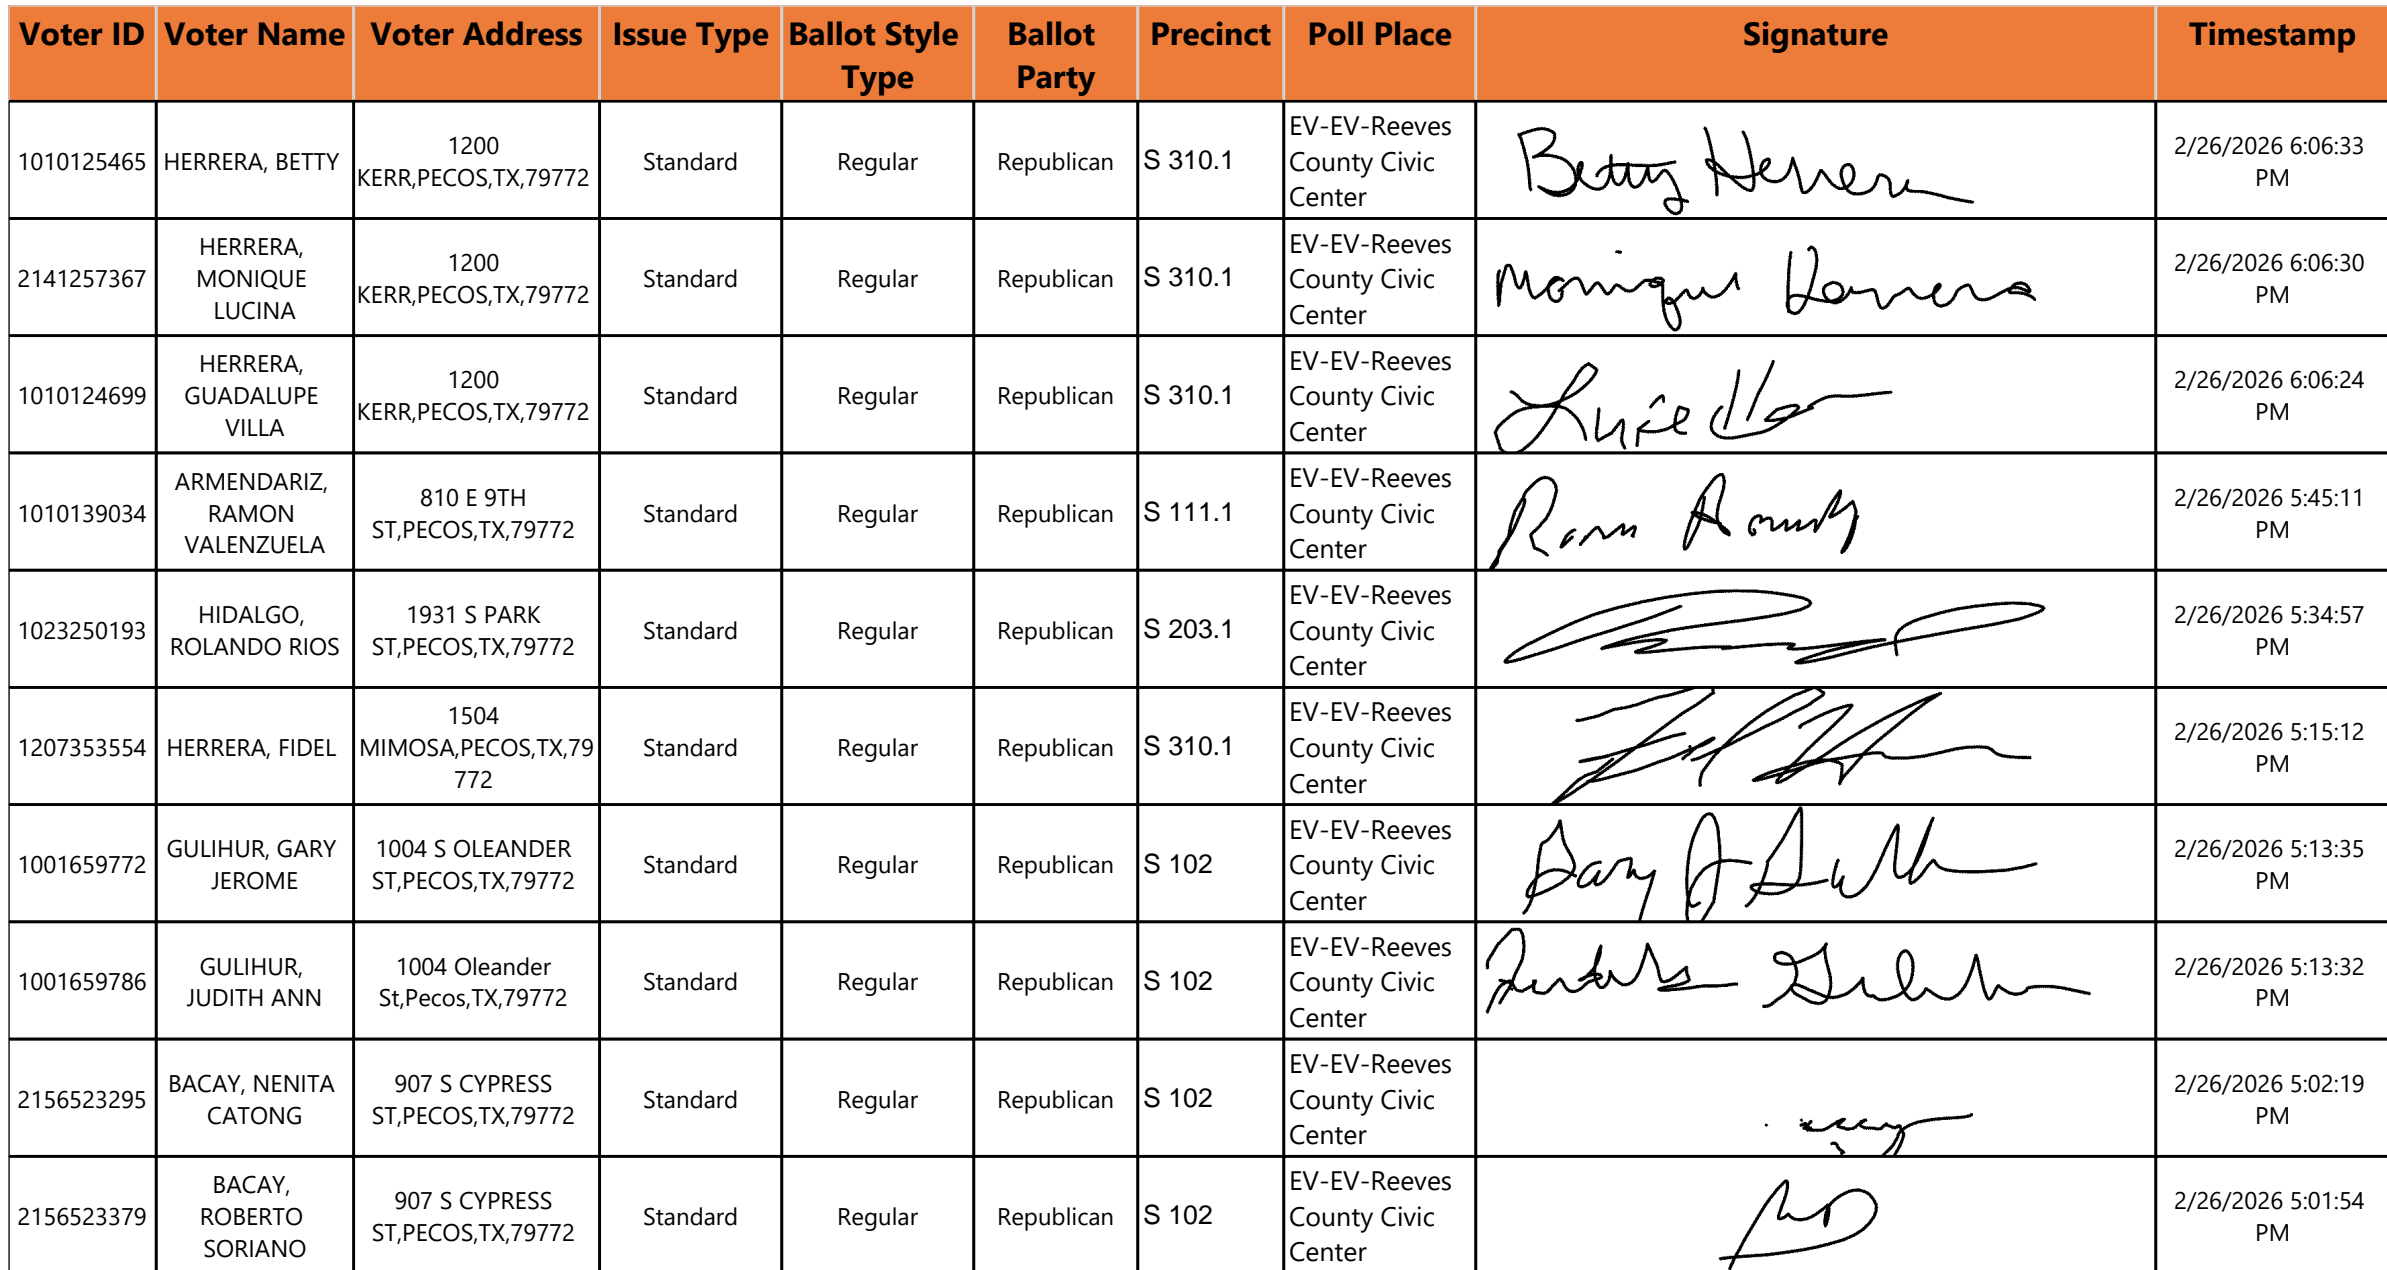 Voter ID Voter Name Voter Address Issue Type Ballot Style Type Ballot Party Precinct Poll Place Signature Timestamp
1010125465 HERRERA, BETTY 1200 KERR,PECOS,TX,79772 Standard Regular Republican S 310.1 EV-EV-Reeves County Civic Center Betty Herrera 2/26/2026 6:06:33 PM
2141257367 HERRERA, MONIQUE LUCINA 1200 KERR,PECOS,TX,79772 Standard Regular Republican S 310.1 EV-EV-Reeves County Civic Center Monique Herrera 2/26/2026 6:06:30 PM
1010124699 HERRERA, GUADALUPE VILLA 1200 KERR,PECOS,TX,79772 Standard Regular Republican S 310.1 EV-EV-Reeves County Civic Center 2/26/2026 6:06:24 PM
1010139034 ARMENDARIZ, RAMON VALENZUELA 810 E 9TH ST,PECOS,TX,79772 Standard Regular Republican S 111.1 EV-EV-Reeves County Civic Center 2/26/2026 5:45:11 PM
1023250193 HIDALGO, ROLANDO RIOS 1931 S PARK ST,PECOS,TX,79772 Standard Regular Republican S 203.1 EV-EV-Reeves County Civic Center 2/26/2026 5:34:57 PM
1207353554 HERRERA, FIDEL 1504 MIMOSA,PECOS,TX,79772 Standard Regular Republican S 310.1 EV-EV-Reeves County Civic Center 2/26/2026 5:15:12 PM
1001659772 GULIHUR, GARY JEROME 1004 S OLEANDER ST,PECOS,TX,79772 Standard Regular Republican S 102 EV-EV-Reeves County Civic Center Gary J 2/26/2026 5:13:35 PM
1001659786 GULIHUR, JUDITH ANN 1004 Oleander St,Pecos,TX,79772 Standard Regular Republican S 102 EV-EV-Reeves County Civic Center 2/26/2026 5:13:32 PM
2156523295 BACAY, NENITA CATONG 907 S CYPRESS ST,PECOS,TX,79772 Standard Regular Republican S 102 EV-EV-Reeves County Civic Center 2/26/2026 5:02:19 PM
2156523379 BACAY, ROBERTO SORIANO 907 S CYPRESS ST,PECOS,TX,79772 Standard Regular Republican S 102 EV-EV-Reeves County Civic Center 2/26/2026 5:01:54 PM